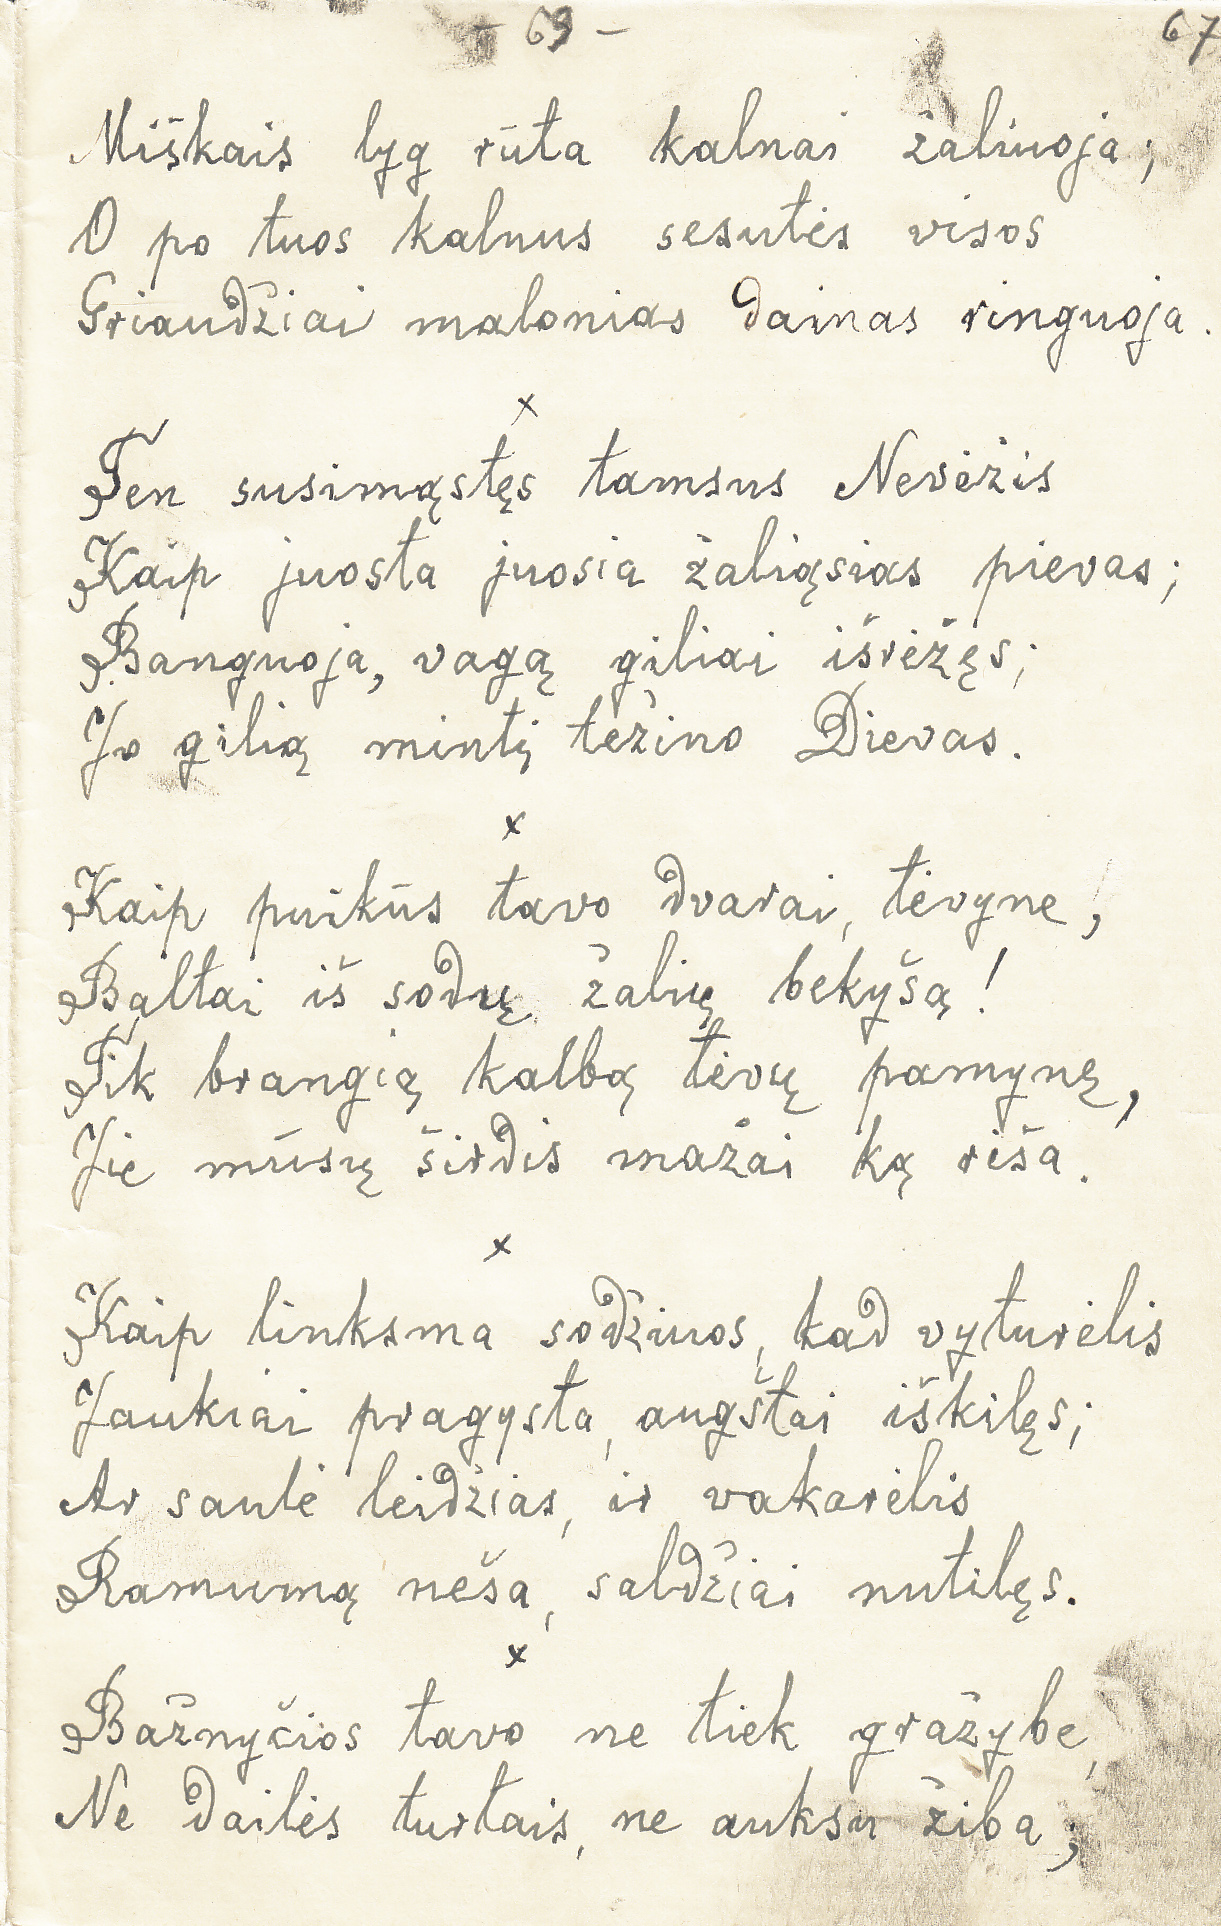 - 69 -
67
Miškais lyg rūta kalnai žaliuoja;
O po tuos kalnus sesutės visos
Griaudžiai malonias dainas ringuoja.
x
Ten susimąstęs tamsus Nevėžis
Kaip juosta juosia žaliąsias pievas;
Banguoja, vagą giliai išrėžęs;
Jo gilią mintį težino Dievas.
x
Kaip puikūs tavo dvarai, tėvyne,
Baltai iš sodų žalių bekyšą!
Tik brangią kalbą tėvų pamynę,
Jie mūsų širdis mažai ką riša.
x
Kaip linksma sodžiuos, kad vyturėlis
Jaukiai pragysta, augštai iškilęs;
Ar saulė leidžias, ir vakarėlis
Ramumą neša, saldžiai nutilęs.
x
Bažnyčios tavo ne tiek gražybe,
Ne dailės turtais, ne auksu žiba;